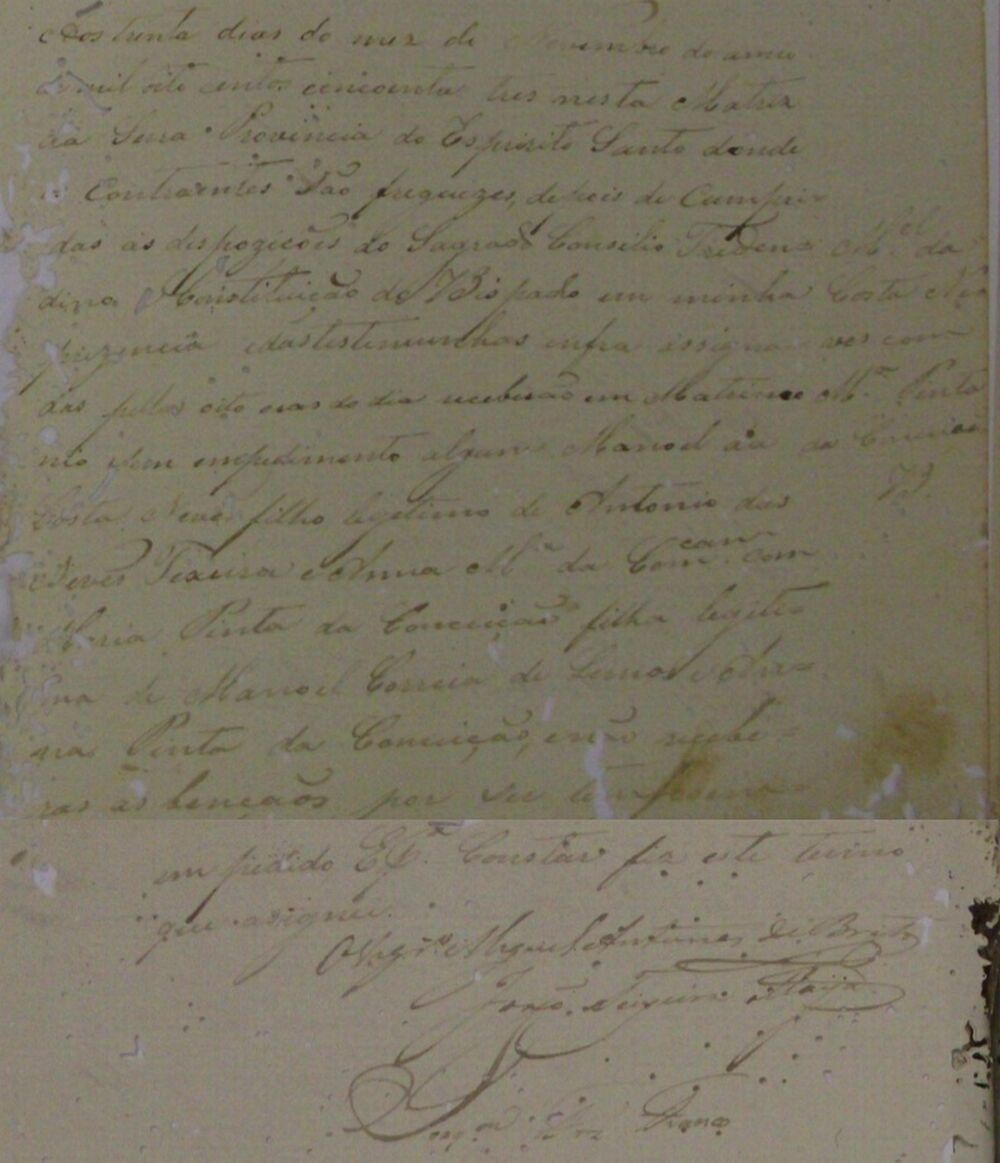 Aos trinta dias do mez de Novembro do anno
de mil oito centos cincoenta tres nesta Matriz
da Serra Provincia do Espirito Santo donde
os Contraentes São freguezes, depois de Cumpri-
das as dispozicões do Sagrado Consilio Triden=
dino Constituição do Bispado em minha
prezencia e das testemunhas infra assigna
das pellas oito oras do dia receberão em Matrimo
nio sem empedimento algum Manoel da
Costa Neves filho legitimo de Antonio das
Neves Texeira e Anna M.ª da Com.cam com
Maria Pinta da Conceição filha legiti=
ma de Manoel Correia de Lemos e An=
na Pinta da Conceição, e não recebe=
rão as bençãos por ser
em pedido E p.ª Constar fiz este termo
que asignei.
O Vigr.º Miguel Antunes de Brito
João Teixeira
M.el da
Costa Ne
ves com
M.ª Pinta
da Conceicão